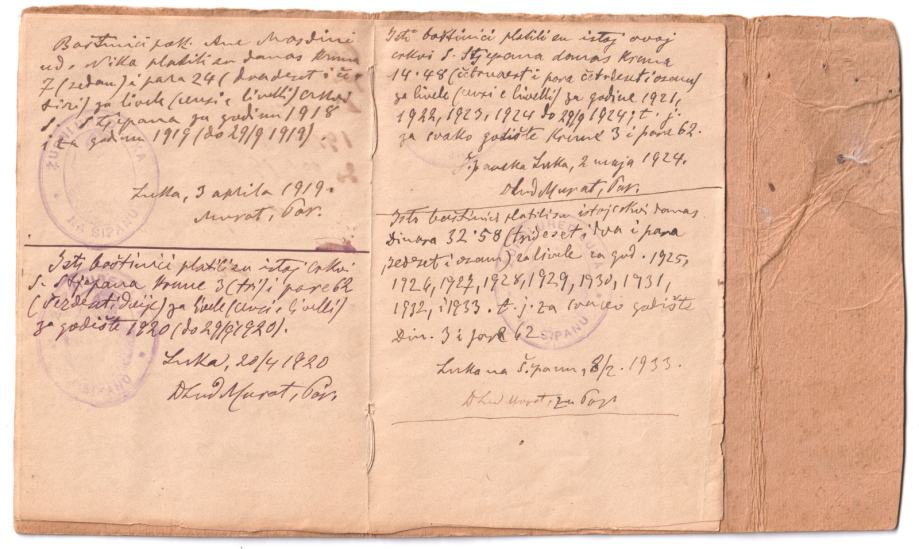 Baštinici pok. Ane Mrsdini
ud. Nika platili su danas kruna
7 (sedam) i para 24 (dvadeset i če-
tiri) za livele (censi e livelli) crkvi
S. Stjepana za godinu 1918
i za godinu 1919 (do 29/9 1919)
Luka, 3 aprila 1919.
Murat, Par.
Isti baštinici platili su istoj crkvi
S. Stjepana krune 3 (tri) i pare 62
(šezdeset i dvije) za livele (censi e livelli)
za godište 1920 (do 29/9 1920).
Luka, 20/4 1920
D Lud Murat, Par.
Isti baštinici platili su istoj ovoj
crkvi S. Stjepana danas kruna
14.48 (četrnaest i para četrdeset i osam)
za livele (censi e livelli) za godine 1921,
1922, 1923, 1924 do 29/9 1924; t. j.
za svako godište krune 3 i pare 62.
Šipanska Luka, 2 maja 1924.
D Lud Murat, Par.
Isti baštinici platili su istoj crkvi danas
Dinara 32.58 (trideset i dva i para
pedeset i osam) za livele za god. 1925,
1926, 1927, 1928, 1929, 1930, 1931,
1932, i 1933. t. j. za svako godište
Din. 3 i para 62
Luka na Šipanu, 2. 1933.
D Lud Murat, Par.
ŽUPNI URED LUKA
NA ŠIPANU